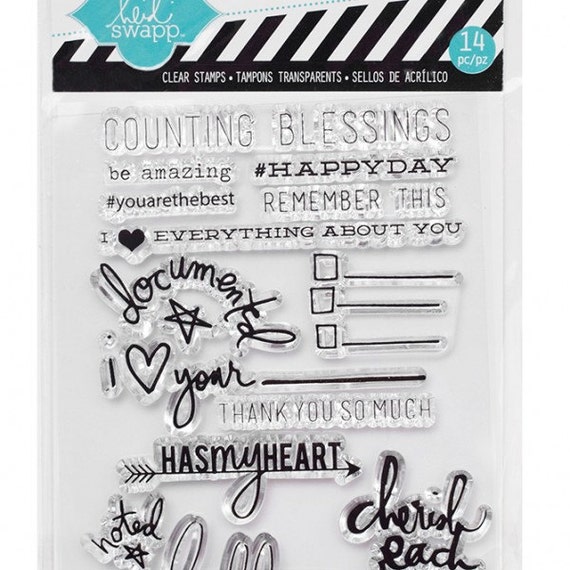 heidi
swapp™
14
pc/pz
CLEAR STAMPS • TAMPONS TRANSPARENTS • SELLOS DE ACRÍLICO
COUNTING BLESSINGS
be amazing #HAPPYDAY
#youarethebest REMEMBER THIS
I ♥ EVERYTHING ABOUT YOU
documented
I ♡ your
THANK YOU SO MUCH
HAS my HEART
noted
cherish
each